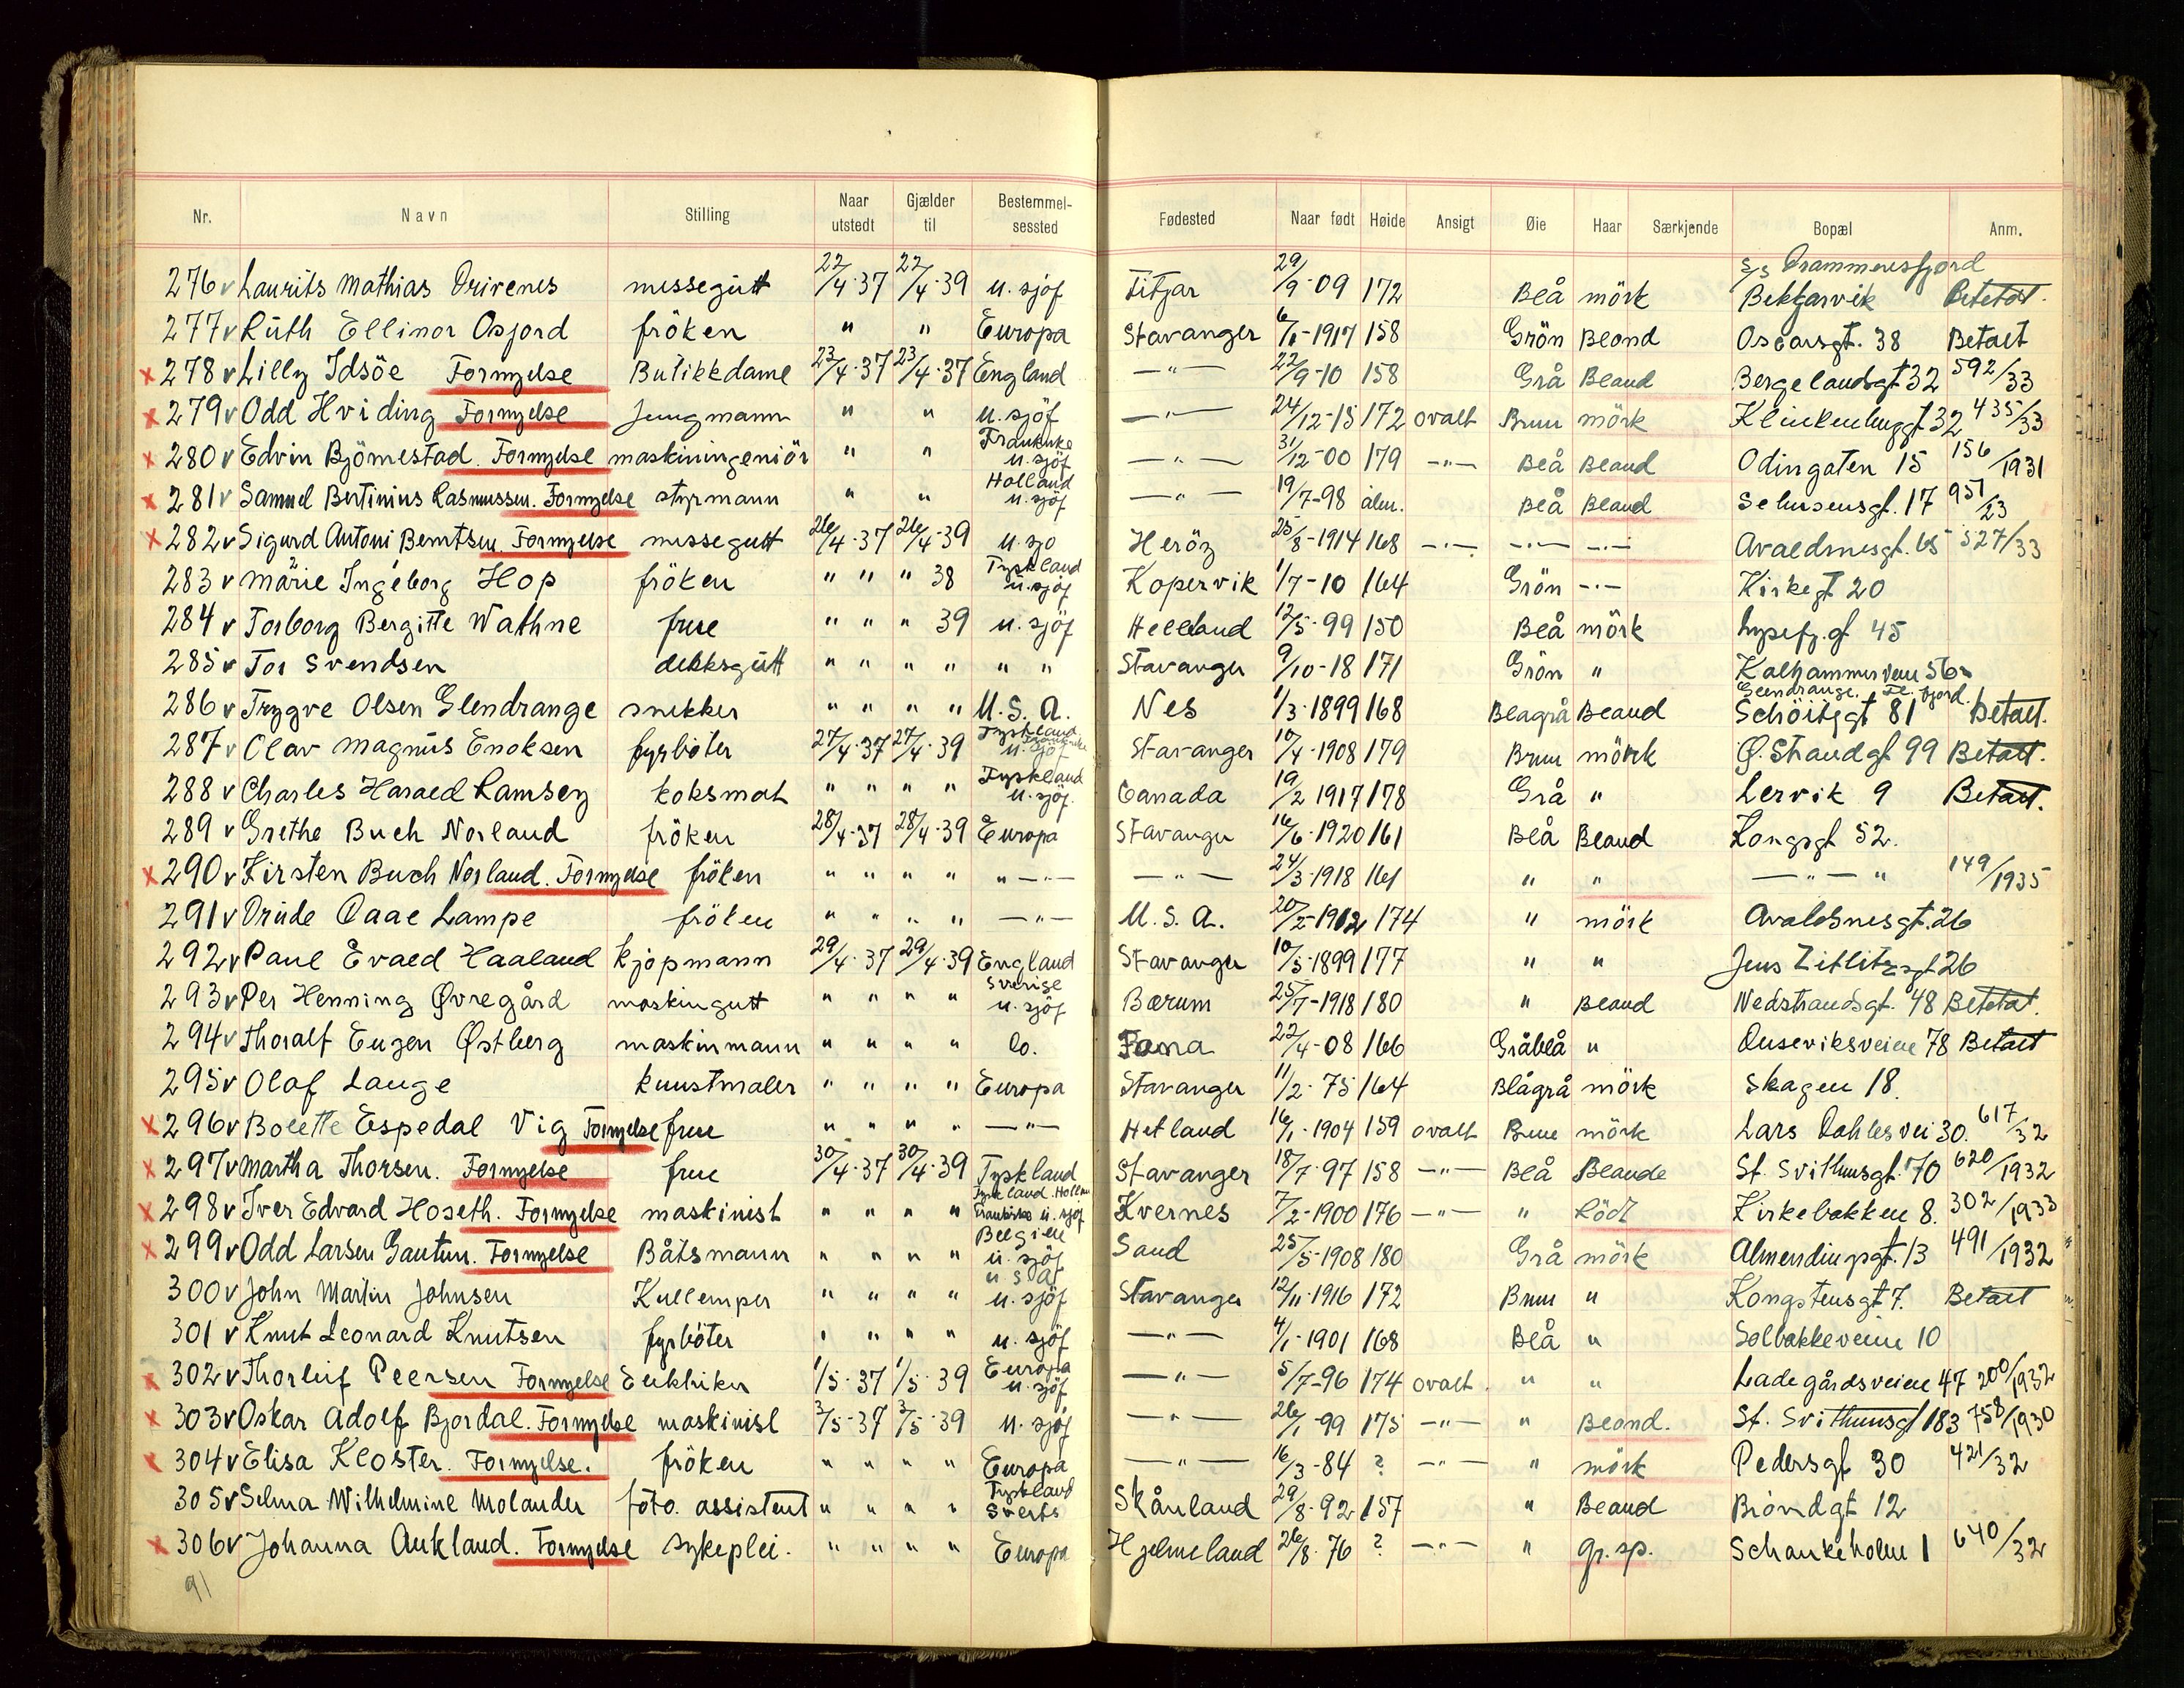 Nr. Navn Stilling Naar utstedt Gjælder til Bestemmel-sessted Fødested Naar født Høide Ansigt Øie Haar Særkjende Bopæl Anm.
276 v Laurits Mathias Drivenes messegutt 22/4-37 22/4-39 u. sjöf Fitjar 29/9-09 172 Blå mörk s/s Drammensfjord Bekkjarvik Betalt.
277 v Ruth Ellinor Osjord fröken " " Europa Stavanger 6/1-1917 158 Grön Blond Oscarsgt. 38 Betalt
x 278 v Lilly Idsöe Fornyelse Butikkdame 23/4-37 23/4-37 England —"— 22/9-10 158 Grå Blond Bergelandsgt 32 592/33
x 279 v Odd Hviding Fornyelse Jungmann " " u. sjöf —"— 24/12-15 172 ovalt Brun mörk Klinkenbuggt 32 435/33
x 280 v Edvin Björnestad. Fornyelse maskiningeniör " " Frankrike u. sjöf —"— 31/12-00 179 —"— Blå Blond Odingaten 15 156/1931
x 281 v Samuel Bertinius Rasmussen. Fornyelse styrmann " " Holland u. sjöf —"— 19/7-98 alm. Blå Blond Sehusensgt. 17 951/23
x 282 v Sigurd Antoni Berntsen. Fornyelse messegutt 26/4-37 26/4-39 u. sjo Heröy 25/8-1914 168 —"— —"— —"— Avaldsnesgt. 65 527/33
283 v Marie Ingeborg Hop fröken " " " 38 Tyskland u. sjöf Kopervik 1/7-10 164 Grön —"— Kirkegt 20
284 v Torborg Bergitte Wathne frue " " " 39 u. sjöf Helland 12/5-99 150 Blå mörk Lysefj.gt 45
285 v Tor Svendsen dekksgutt " " " " " " Stavanger 9/10-18 171 Grön " Kalhammerveien 56
286 v Trygve Olsen Glendrange snekker " " " " U.S.A. Nes 1/3-1899 168 Blågrå Blond Glendrange. Fl. fjord. Schöitzgt 81 Betalt.
287 v Olav Magnus Enoksen fyrböter 27/4-37 27/4-39 Tyskland Frankrike u. sjö Stavanger 10/4-1908 179 Brun mörk Ø. Strandgt 99 Betalt.
288 v Charles Harald Ramsey koksmat " " " " Tyskland u. sjöf. Canada 19/2 1917 178 Grå " Lervik 9 Betalt.
289 v Grethe Buch Norland fröken 28/4-37 28/4-39 Europa Stavanger 16/6-1920 161 Blå Blond Kongsgt 52.
x 290 v Kirsten Buch Norland. Fornyelse fröken " " " " "—"— —"— 24/3-1918 161 " " —"— " 149/1935
291 v Drude Qaae Lampe fröken " " " " —"— U.S.A. 20/2-1912 174 " mörk Avaldsnesgt. 26
292 v Paul Evald Haaland kjøpmann 29/4-37 29/4-39 England Stavanger 10/5-1899 177 " " Jens Zetlitzsgt 26
293 v Per Henning Øvregård maskingutt " " " " Sverige u. sjöf Bærum 25/7-1918 180 " Blond Nedstrandsgt. 48 Betalt.
294 v Thoralf Eugen Østberg maskinmann " " " " Do. Fana 22/4-08 166 Gråblå " Auseviksveien 78 Betalt
295 v Olaf Lange kunstmaler " " " " Europa Stavanger 11/2-75 164 Blågrå mörk Skagen 18.
x 296 v Bolette Espedal Vig Fornyelse frue " " " " —"— Hetland 16/1-1904 159 ovalt Brun mörk Lars Dahlesvei 30. 617/32
x 297 v Martha Thorsen. Fornyelse frue 30/4-37 30/4-39 Tyskland Stavanger 18/7-97 158 —"— Blå Blonde St. Svithunsgt. 70 620/1932
x 298 v Iver Edvard Hoseth. Fornyelse maskinist " " " " Tyskland. Hollan Frankrike u. sjöf Kvernes 7/2-1900 176 —"— " Rödt Kirkebakken 8. 302/1933
x 299 v Odd Larsen Gautun. Fornyelse Båtsmann " " " " Belgien u. sjöf Sand 25/5-1908 180 Grå mörk Almendingsgt. 13 491/1932
300 v John Martin Johnsen Kullemper " " " " U S A u. sjöf Stavanger 12/11-1916 172 Brun " Kongstensgt 7. Betalt
301 v Knut Leonard Knutsen fyrböter " " " " u. sjöf —"— 4/1-1901 168 Blå " Solbakkeveien 10
x 302 v Thorleif Peersen Fornyelse Elektriker 1/5-37 1/5-39 Europa u. sjöf —"— 5/7-96 174 ovalt. " " Ladegårdsveien 47 200/1932
x 303 v Oskar Adolf Bjordal. Fornyelse maskinist 3/5-37 3/5-39 u. sjöf —"— 26/1-99 175 —"— " Blond. St. Svithunsgt 183 758/1930
x 304 v Elisa Kloster. Fornyelse. fröken " " " " Europa —"— 16/3-84 ? —"— " mörk Pedersgt 30 421/32
305 v Selma Wilhelmine Molander foto. assistent " " " " Tyskland Sveits Skånland 29/8-92 157 " Blond Brøndgt 12
x 306 v Johanna Aukland. Fornyelse sykeplei. " " " " Europa Hjelmeland 26/8-76 ? —"— " gr. sp. Schankeholm 1 640/32
91